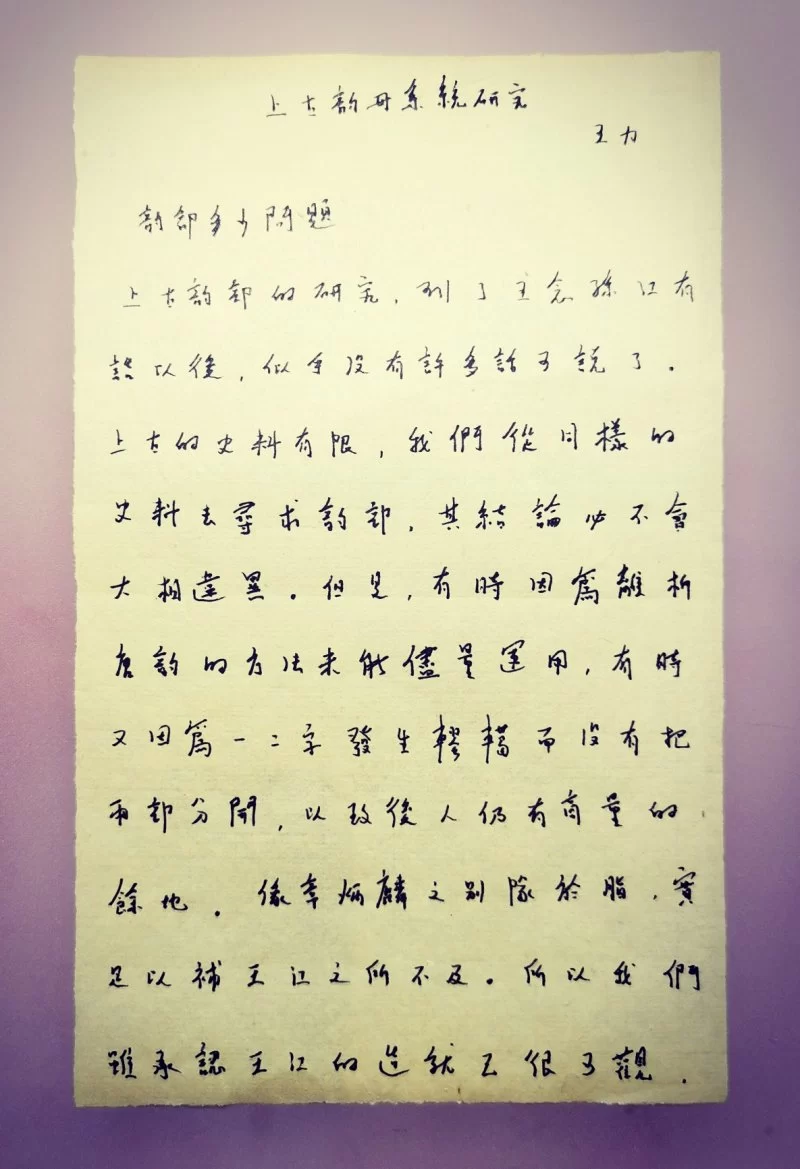 上古韵母系統研究
王力
韵部多少問題
上古韵部的研究，到了王念孫江有
誥以後，似乎没有許多話可説了。
上古的史料有限，我們從同樣的
史料去尋求韵部，其結論必不會
大相違異。但是，有時因爲離析
唐韵的方法未能儘量運用，有時
又因爲一二字發生轇轕而没有把
兩部分開，以致後人仍有商量的
餘地。像章炳麟之别隊於脂，實
足以補王江之所不及。所以我們
雖承認王江的造就已很可觀，